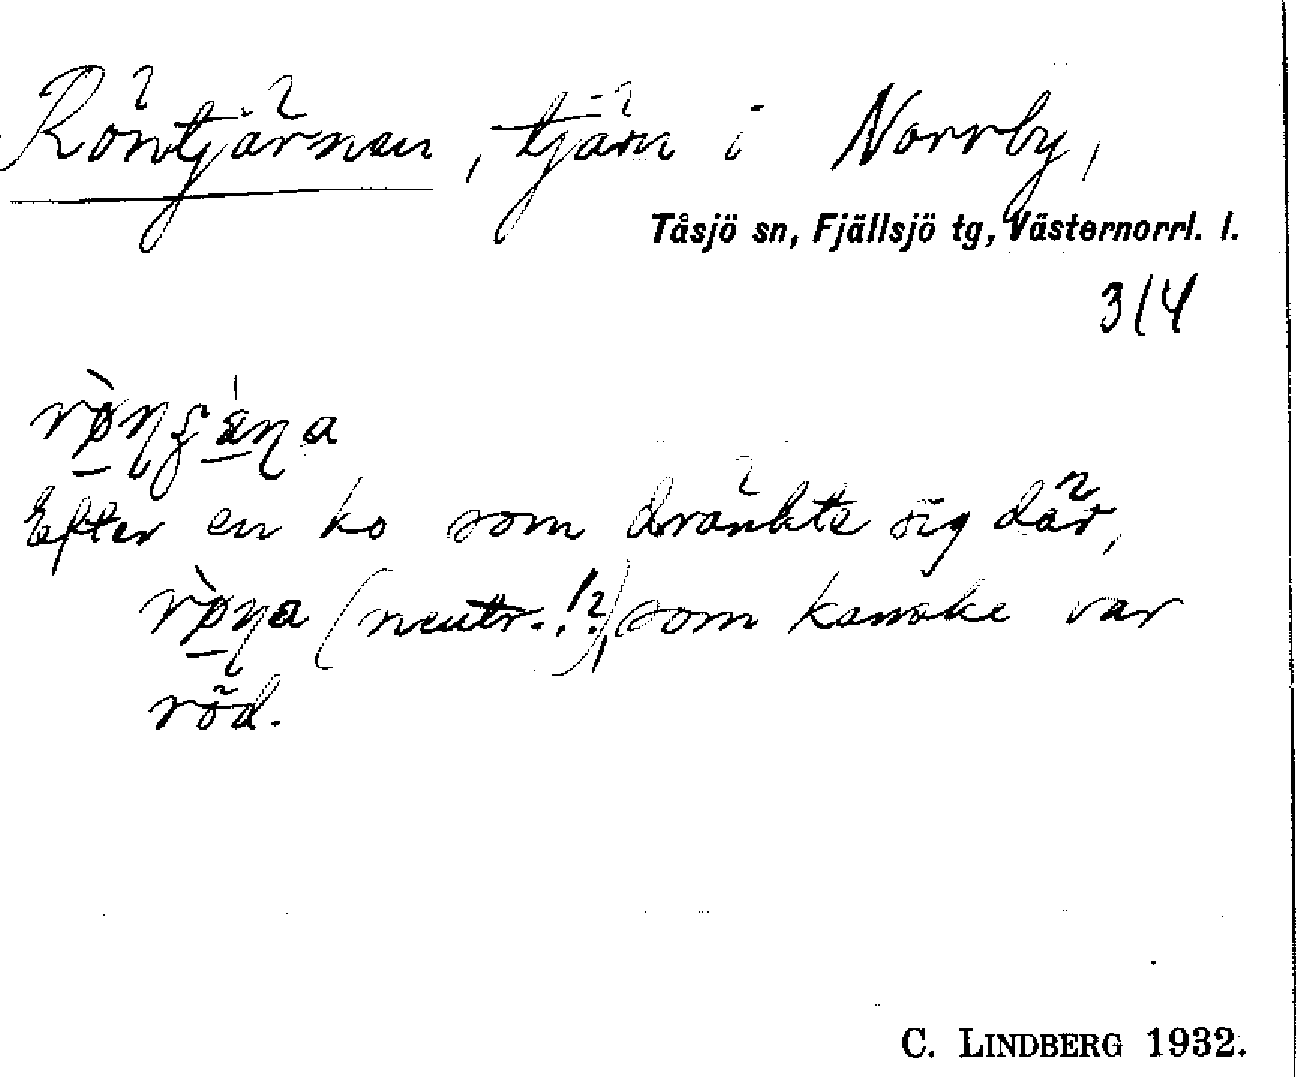 Röntjärnen, tjärn i Norrby,
Tåsjö sn, Fjällsjö tg, Västernorrl. l.
3/4
Efter en ko som dränkte sig där,
(neutr.!?), som kanske var
röd.
C. LINDBERG 1932.